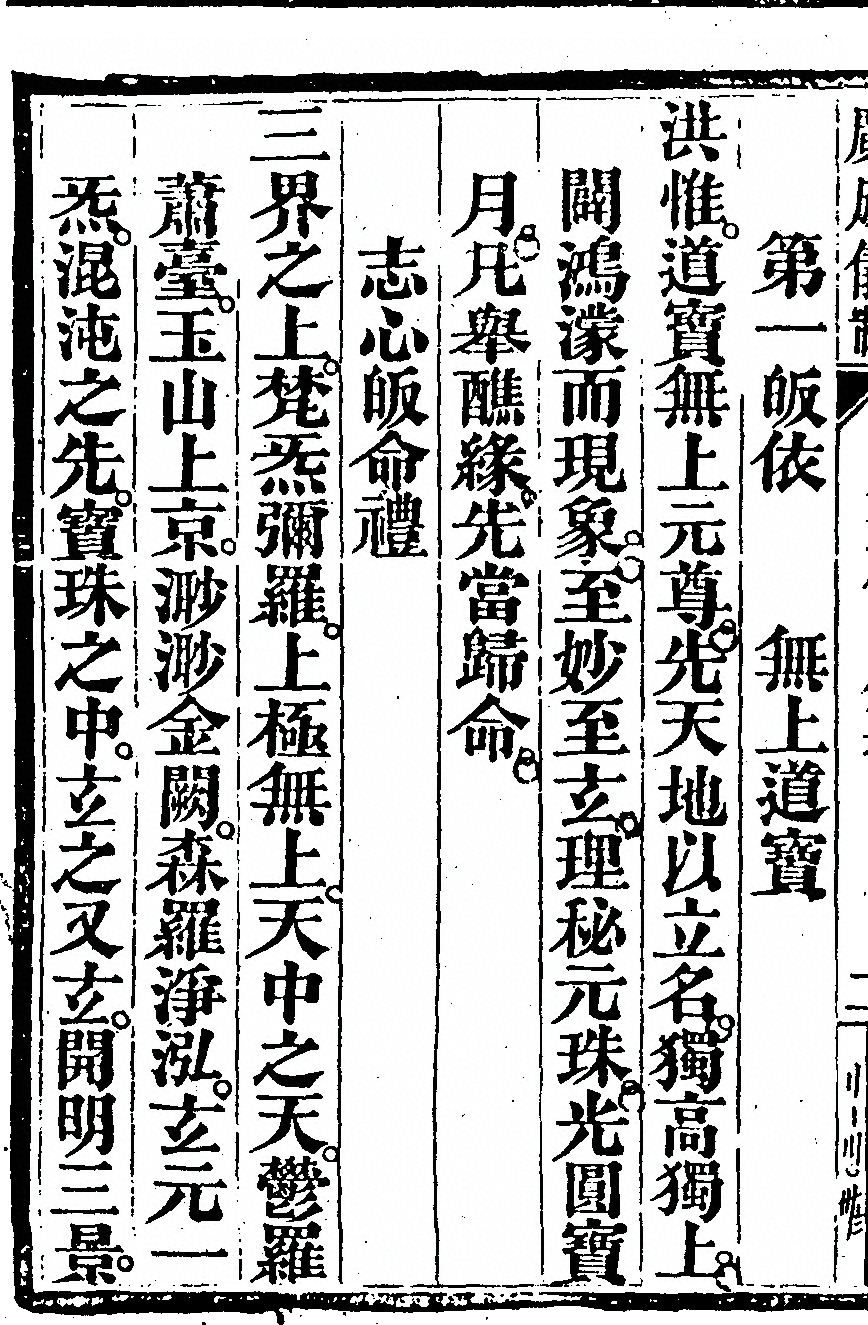 廣成儀制
第一皈依　無上道寶
洪惟。道寶無上元尊。先天地以立名。獨高獨上。
闢鴻濛而現象。至妙至玄。理秘元珠。光圓寶
月。凡舉醮緣。先當歸命。
志心皈命禮
三界之上。梵炁彌羅。上極無上。天中之天。鬱羅
蕭臺。玉山上京。渺渺金闕。森羅淨泓。玄元一
炁。混沌之先。寶珠之中。玄之又玄。開明三景。